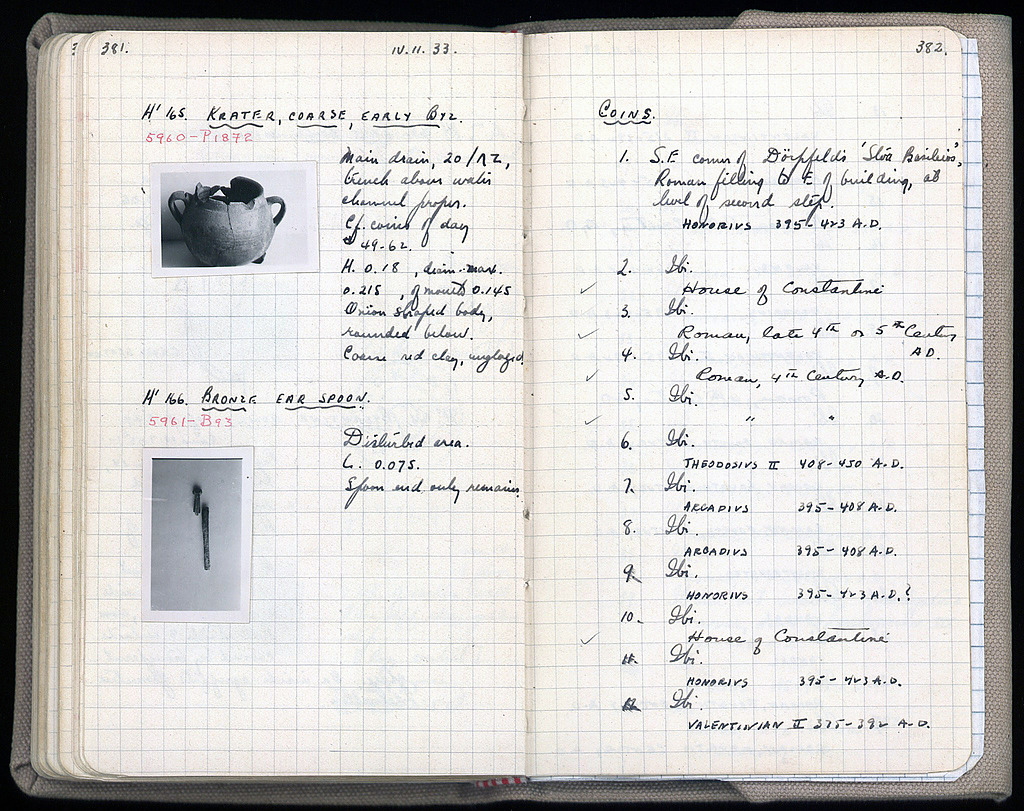 381.
IV. II. 33.
H' 165. KRATER, COARSE, EARLY BYZ.
5960-P1872
Main drain, 20/ΛΖ,
trench above water
channel proper.
Cf. coins of day
# 49-62.
H. 0.18, diam. max.
0.215, of mouth 0.145
Onion shaped body,
rounded below.
Coarse red clay, unglazed.
H' 166. BRONZE EAR SPOON.
5961-B93
Disturbed area.
L. 0.075.
Spoon end only remains.
382.
COINS.
1. S.E. corner of Dörpfeld's 'Stoa Basileios',
Roman filling to E of building, at
level of second step.
HONORIUS 395-423 A.D.
2. Ibi.
✓ House of Constantine
3. Ibi.
✓ Roman, late 4th or 5th Century
A.D.
4. Ibi.
✓ Roman, 4th Century A.D.
5. Ibi.
✓ " "
6. Ibi.
THEODOSIUS II 408-450 A.D.
7. Ibi.
ARCADIUS 395-408 A.D.
8. Ibi.
ARCADIUS 395-408 A.D.
9. Ibi.
HONORIUS 395-423 A.D.?
10. Ibi.
✓ House of Constantine
11. Ibi.
HONORIUS 395-423 A.D.
12. Ibi.
VALENTINIAN II 375-392 A.D.